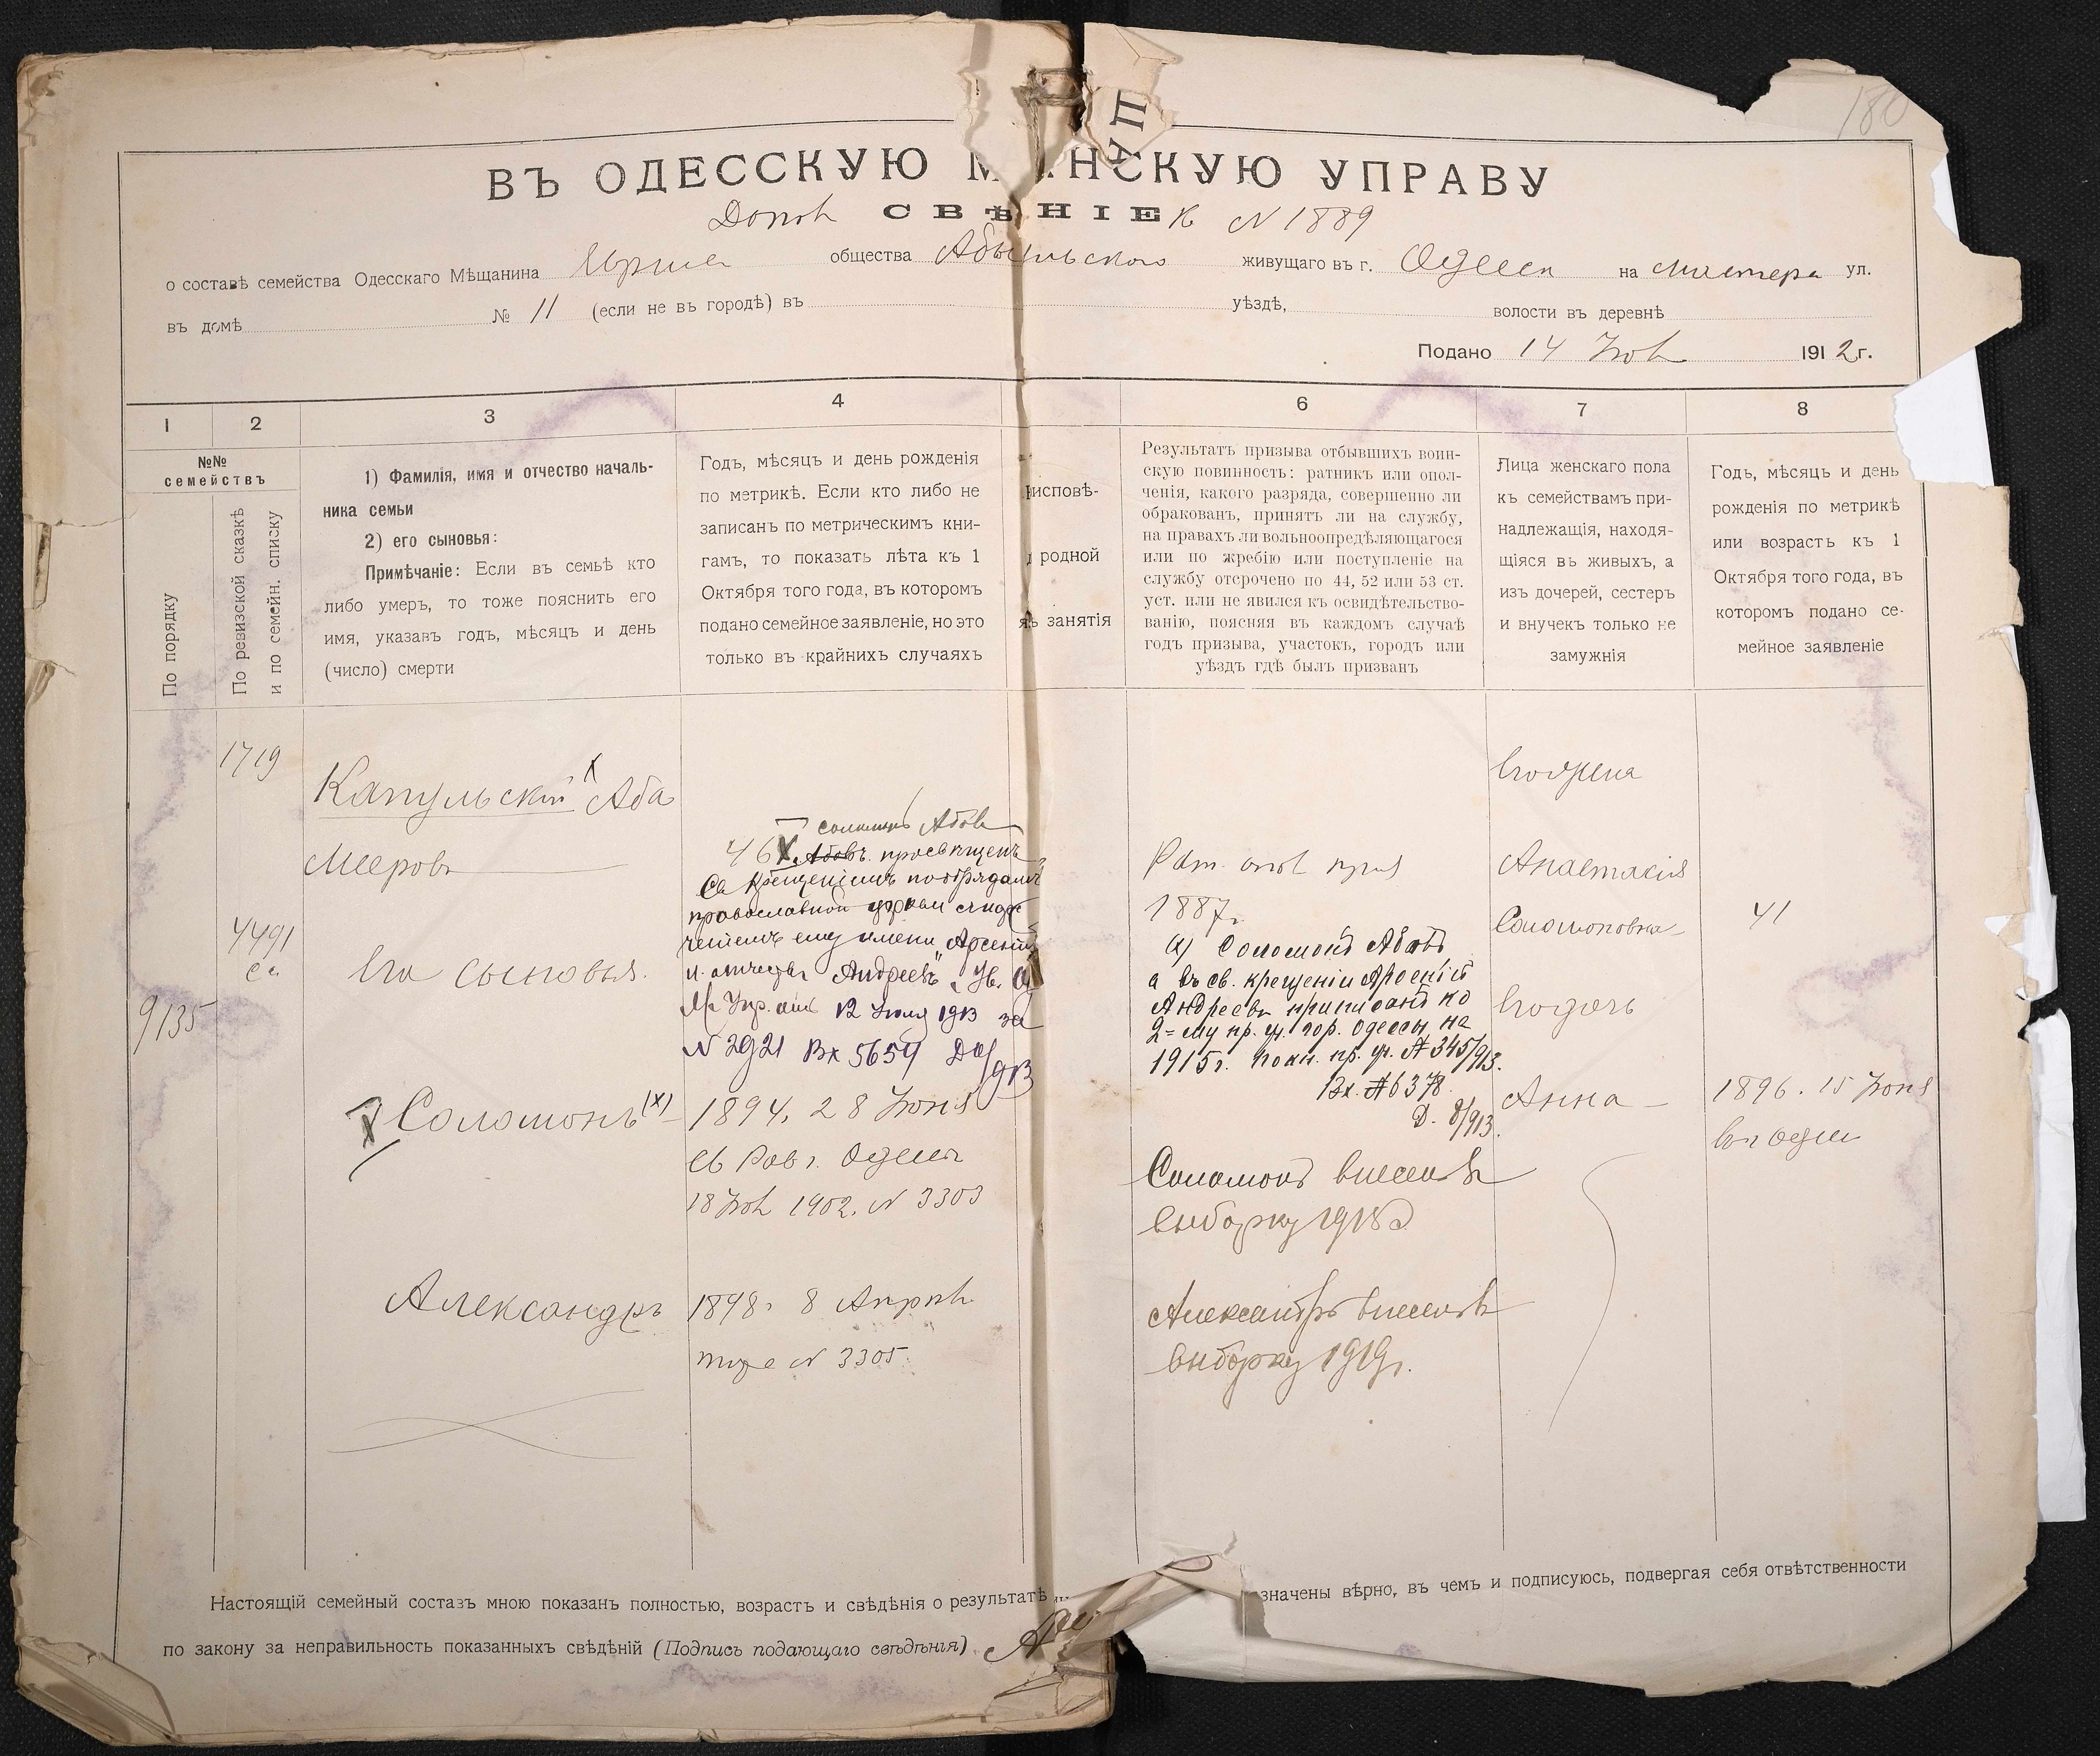 180
ВЪ ОДЕССКУЮ М НСКУЮ УПРАВУ
СВѢ НІЕ к N 1889
о составѣ семейства Одесскаго Мѣщанина общества живущаго въ г. Одесса на ул.
въ домѣ № 11 (если не въ городѣ) въ уѣздѣ, волости въ деревнѣ
Подано 14 1912 г.
1 2 3 4 6 7 8
№№ семействъ
По порядку
По ревизской сказкѣ
и по семейн. списку
1) Фамилія, имя и отчество началь-
ника семьи
2) его сыновья:
Примѣчаніе: Если въ семьѣ кто
либо умеръ, то тоже пояснить его
имя, указавъ годъ, мѣсяцъ и день
(число) смерти
Годъ, мѣсяцъ и день рожденія
по метрикѣ. Если кто либо не
записанъ по метрическимъ кни-
гамъ, то показать лѣта къ 1
Октября того года, въ которомъ
подано семейное заявленіе, но это
только въ крайнихъ случаяхъ
исповѣ-
родной
занятія
Результатъ призыва отбывшихъ воин-
скую повинность: ратникъ или опол-
ченія, какого разряда, совершенно ли
обракованъ, принятъ ли на службу,
на правахъ ли вольноопредѣляющагося
или по жребію или поступленіе на
службу отсрочено по 44, 52 или 53 ст.
уст. или не явился къ освидѣтельство-
ванію, поясняя въ каждомъ случаѣ
годъ призыва, участокъ, городъ или
уѣздъ гдѣ былъ призванъ
Лица женскаго пола
къ семействамъ при-
надлежащія, находя-
щіяся въ живыхъ, а
изъ дочерей, сестеръ
и внучекъ только не
замужнія
Годъ, мѣсяцъ и день
рожденія по метрикѣ
или возрастъ къ 1
Октября того года, въ
которомъ подано се-
мейное заявленіе
1719
Капульскій Аба
Мееровъ
4491
9135
Его сыновья.
46
Соломонъ Абовъ
Абовъ просвѣщенъ
Св крещеніемъ по обрядамъ
православной церкви с наре
ченіемъ ему имени „Арсеній
и отчества Андреевъ"
12 Іюля 1913 за
N 2921 Вх 5654
Соломонъ (х)
1894, 28 Іюня
18 1902. N 3303
Александръ
1898 г 8 Апрѣл
тоже N 3305
1887 г.
х) Соломонъ Абовъ
а въ св. крещеніи Арсеній
Андреевъ приписанъ ко
2-му пр. уч. гор. Одессы на
1915 г. пр. уч. № 345/913.
Вх. № 6378
Д. 8/913.
Соломонъ внесенъ в
выборку 1915
Александръ внесенъ в
выборку 1919 г.
Его жена
Анастасія
Соломоновна
41
Его дочь
Анна
1896. 15 Іюня
Настоящій семейный составъ мною показанъ полностью, возрастъ и свѣдѣнія о результатѣ значены вѣрно, въ чемъ и подписуюсь, подвергая себя отвѣтственности
по закону за неправильность показанныхъ свѣдѣній (Подпись подающаго свѣдѣнія)